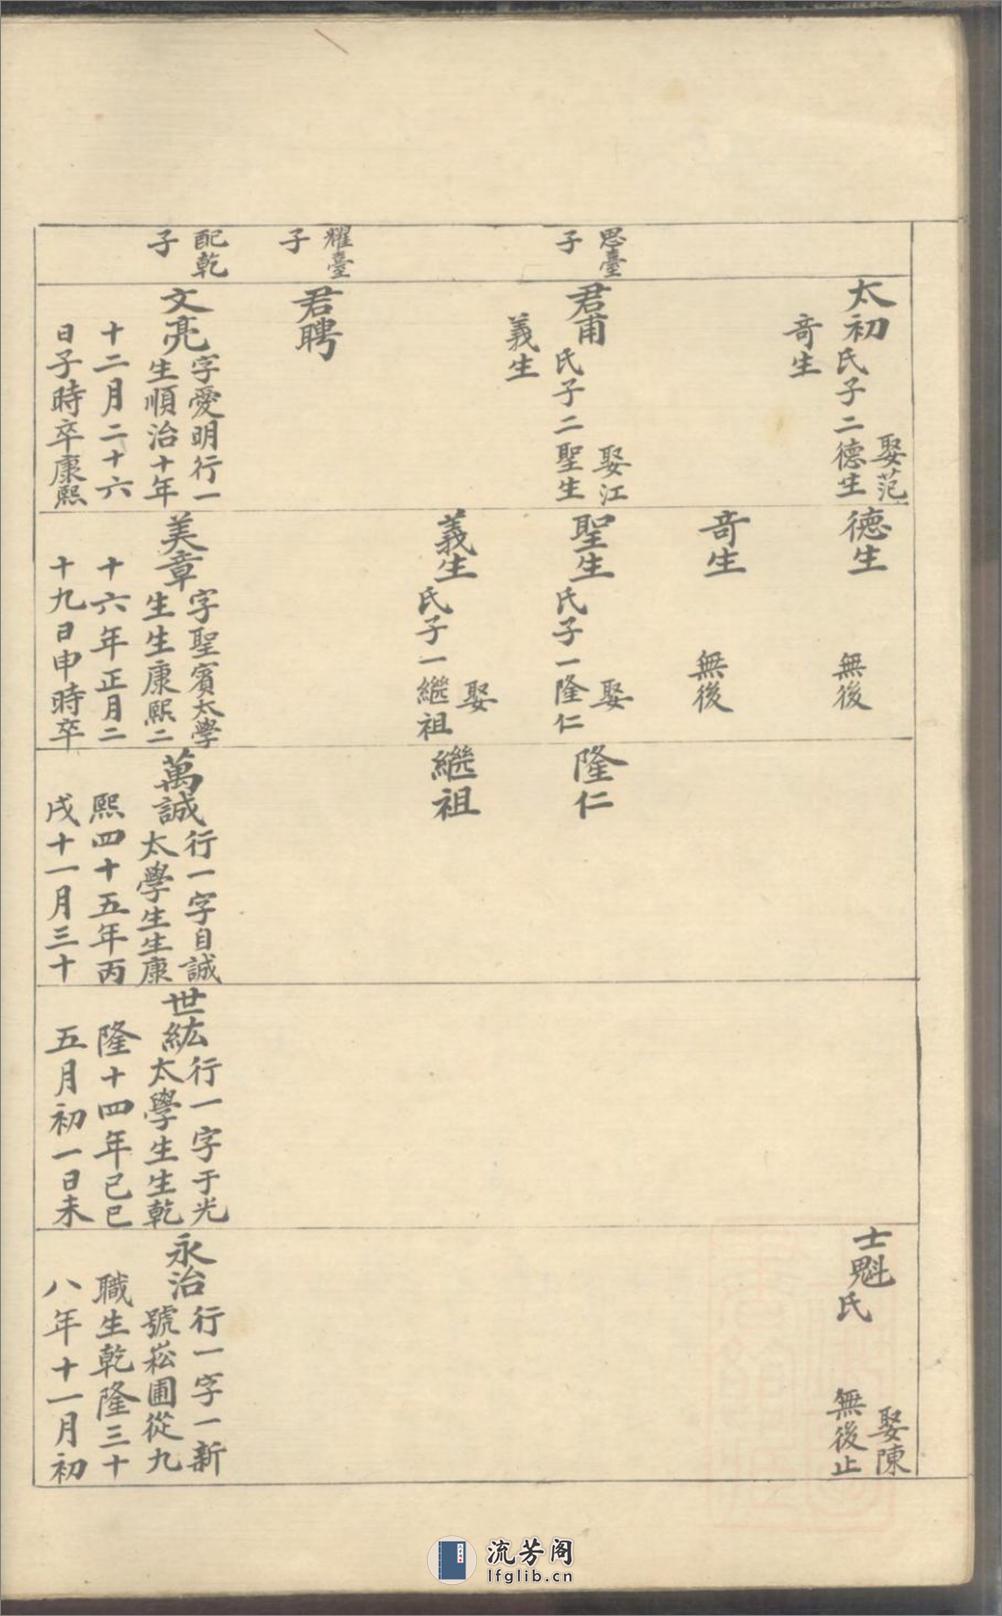 太初
娶范
氏子二德生
竒生
思臺
子
君甫
娶江
氏子二聖生
義生
耀臺
子
君聘
配乾
子
文亮
字愛明行一
生順治十年
十二月二十六
日子時卒康熙
德生
無後
竒生
無後
聖生
娶
氏子一隆仁
義生
娶
氏子一繼祖
美章
字聖賓太學
生生康熙二
十六年正月二
十九日申時卒
隆仁
繼祖
萬誠
行一字自誠
太學生生康
熙四十五年丙
戌十一月三十
世紘
行一字于光
太學生生乾
隆十四年己巳
五月初一日未
士魁
娶陳
氏
無後止
永治
行一字一新
號崧圃從九
職生乾隆三十
八年十一月初
流芳阁
lfglib.cn